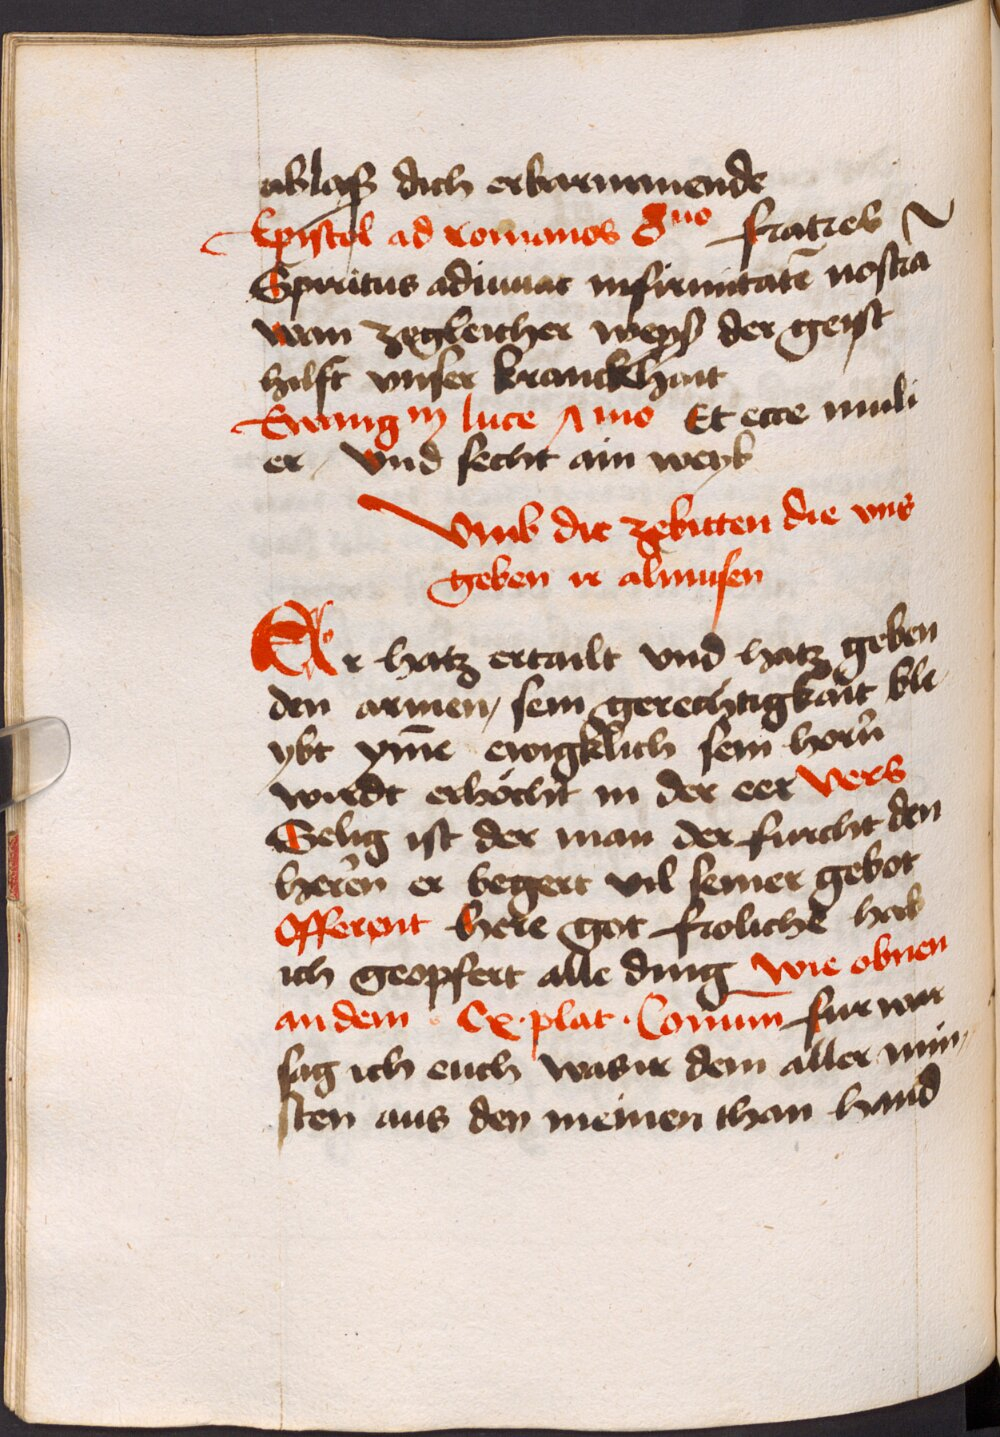 ablaß dich erbarmmende
Epistol ad romanos 8uo fratres
Spiritus adiuuat infirmitatē nostra
wan zegleicher weyß der geist
hilft vnser kranckhait
Ewang luce Et ecce muli
er / Vnd secht ain weyb
Vmb die zebitten die vns
geben ir almusen
Er hatz ertailt vnd hatz geben
den armen / sein gerechtigkait ble
ybt yme ewigklich sein horn
wirdt erhöcht in der eer vers
Selig ist der man der furcht den
heren er begert vil seiner gebot
Offerent here got froliche hab
ich geopfert alle ding wie obnen
an dem plat · Comun fur war
sag ich euch was ir dem aller min /
sten aus den meinen than hand